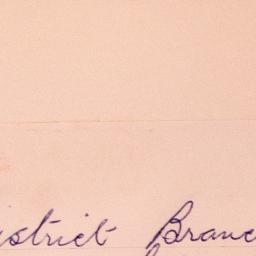 istrict Branc